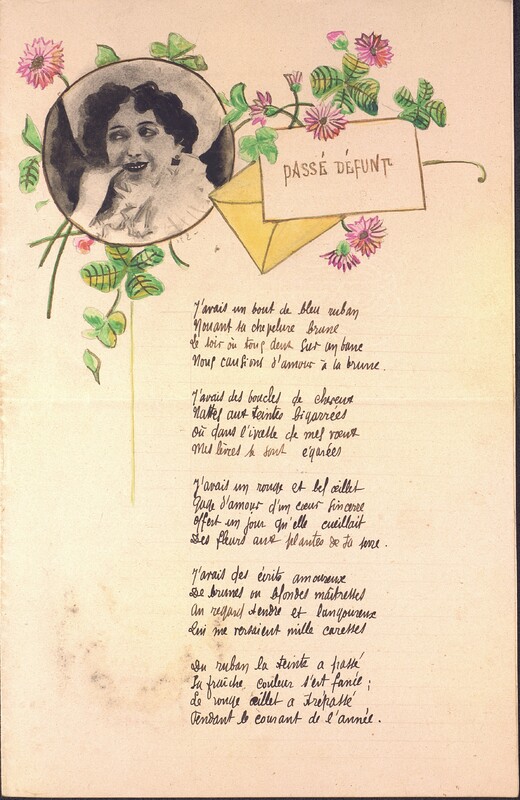 PASSÉ DÉFUNT
J'avais un bout de bleu ruban
Nouant ta chevelure brune
Le soir où tous deux sur un banc
Nous causions d'amour à la brune.
J'avais des boucles de cheveux
Nattes aux teintes bigarrées
Où dans l'ivresse de mes vœux
Mes lèvres se sont égarées
J'avais un rouge et bel œillet
Gage d'amour d'un cœur sincère
Offert un jour qu'elle cueillait
Des fleurs aux plantes de sa serre.
J'avais des écrits amoureux
De brunes ou blondes maîtresses
Au regard tendre et langoureux
Qui me versaient mille caresses
Du ruban la teinte a passé
Sa fraîche couleur s'est fanée ;
Le rouge œillet a trépassé
Pendant le courant de l'année.